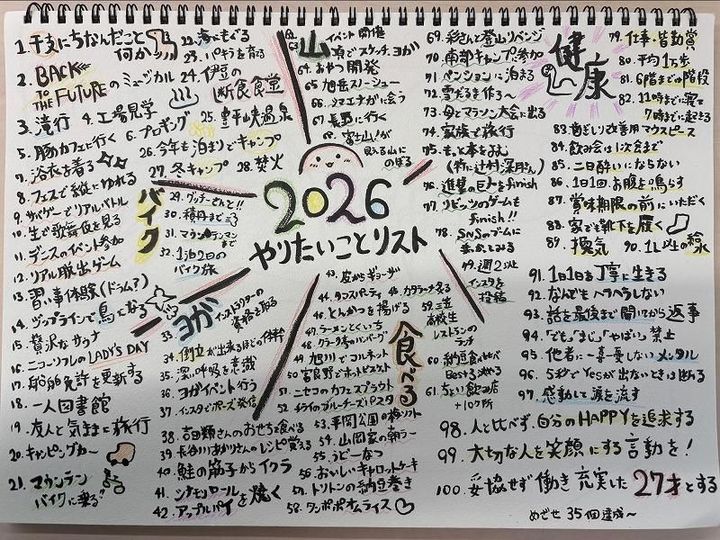 2026
やりたいことリスト
1. 干支にちなんだこと何か
2. BACK TO THE FUTUREのミュージカル
3. 滝行
4. 工場見学
5. 豚カフェに行く
6. プロギング
7. 浴衣を着る
8. フェスで音楽にゆれる
9. サバゲーでリアルバトル
10. 生で歌舞伎を見る
11. デニスのイベント参加
12. リアル脱出ゲーム
13. 習い事体験(ドラム?)
14. ジップラインで鳥になる
15. 贅沢なサウナ
16. ニコーリフレのLADY'S DAY
17. 船舶免許を更新する
18. 一人図書館
19. 友人と気ままに旅行
20. キャンピングカー
21. マウンテンバイクに乗る
22. 海にもぐる
23. パキラを育てる
24. 伊豆の断食食堂
25. 豊平峡温泉
26. 今年も泊まりでキャンプ
27. 冬キャンプ
28. 焚火
バイク
29. グッチーさんと!!
30. 積丹まで走る
31. マウンテンまで
32. 1泊2日のバイク旅
ヨガ
33. インストラクターの資格を取る
34. 倒立が出来るほどの体幹
35. 深い呼吸を意識
36. ヨガイベント行う
37. インスタでポーズ発信
食べる
38. 吉田類さんのおせち食べる
39. 長谷川あかりさんのレシピ覚える
40. 鮭の筋子からイクラ
41. シナモンロール
42. アップルパイを焼く
43. 皮からギョーザ
44. タコスパーティ
45. カタラーナ名
46. とんかつを揚げる
47. ラーメンとくいち
48. クラーク亭のハンバーグ
49. 旭川でコルネット
50. 富良野でホットビスケット
51. ニセコのカフェスプラウト
52. ドライブのブルーチーズパスタ
53. 平岡公園の梅ソフト
54. 山岡家の朝ラー
55. うどーなつ
56. おいしいキャロットケーキ
57. トリトンの納豆巻き
58. タンポポオムライス
59. 三笠高校生レストランのランチ
60. 納豆食べ比べBest3決める
61. ちょい飲み店+10ケ所
山
イベント開催
67. おやつ開発
65. 旭岳スノーシュー
66. シマエナガに会う
67. 長野に行く
68. 富士山が見える山にのぼる
69. 彩さんと登山リベンジ
70. 南部キャンプに参加
71. ペンションに泊まる
72. 雪だるま作る〜
73. 母とマラソン大会に出る
74. 家族で旅行
75. もっと本をよむ
(特に辻村深月さん)
76. 進撃の巨人をfinish
77. リピッツのゲームもfinish!!
78. SNSのブームに
79. 週2以上インスタを投稿
健康
79. 仕事・皆勤賞
80. 平均1万歩
81. 6階までの階段
82. 11時までに寝て7時までに起きる
83. 食いしばり改善用マウスピース
84. 飲み会は1次会まで
85. 二日酔いにならない
86. 1日1回お腹を鳴らす
87. 賞味期限の前にいただく
88. 家でも靴下を履く
89. 換気
90. 1L以上の給水
91. 1日1日を丁寧に生きる
92. なんでもヘラヘラしない
93. 話を最後まで聞けてから返事
94. 「でも」「まじ」「やばい」禁止
95. 他者に一喜一憂しないメンタル
96. 5秒でYesが出ないときは断る
97. 感動して涙を流す
98. 人と比べず、自分のHAPPYを追求する
99. 大切な人を笑顔にする言動を!
100. 妥協せず働き充実した27才とする
めざせ35個達成〜